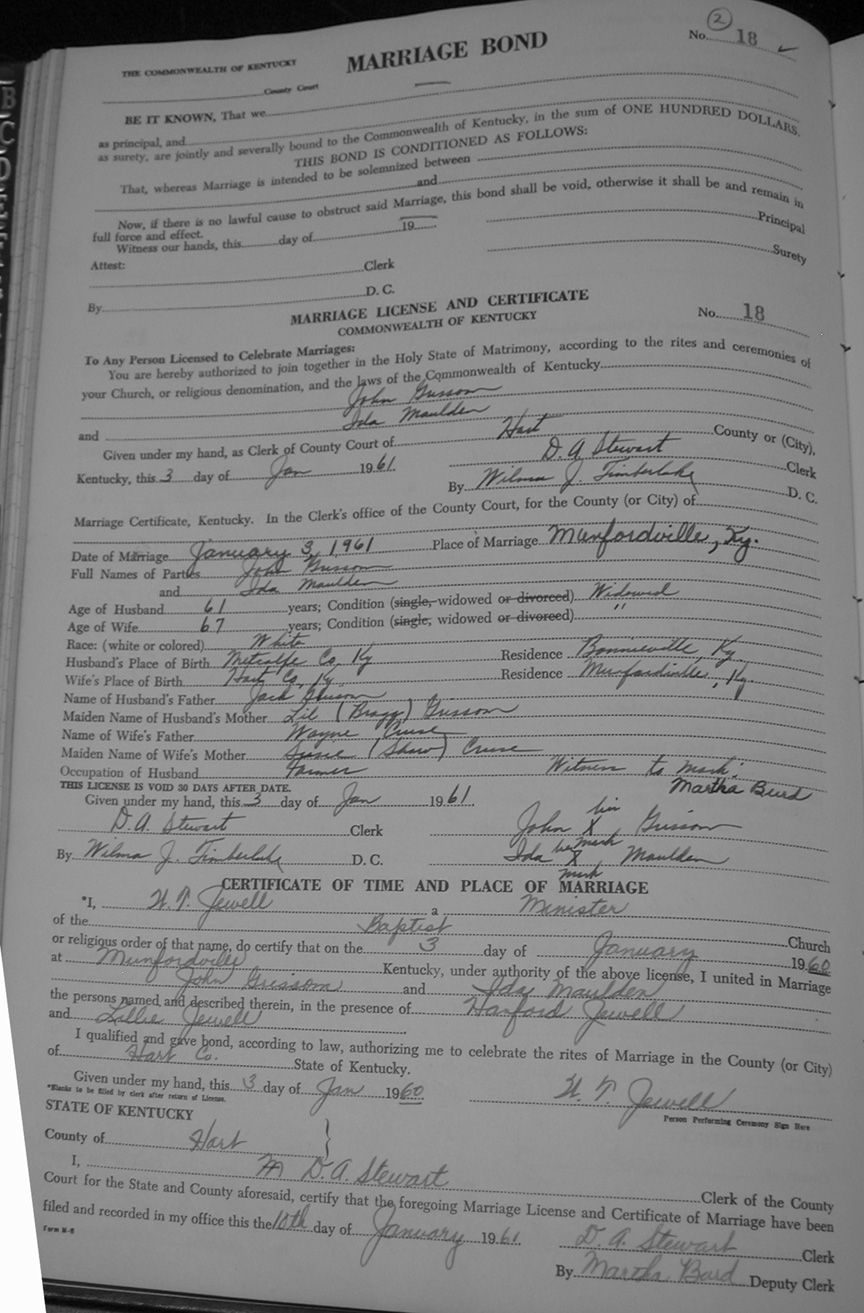 2
No. 18
THE COMMONWEALTH OF KENTUCKY
MARRIAGE BOND
County Court
BE IT KNOWN, That we
as principal, and
as surety, are jointly and severally bound to the Commonwealth of Kentucky, in the sum of ONE HUNDRED DOLLARS.
THIS BOND IS CONDITIONED AS FOLLOWS:
That, whereas Marriage is intended to be solemnized between
and
Now, if there is no lawful cause to obstruct said Marriage, this bond shall be void, otherwise it shall be and remain in
full force and effect.
Witness our hands, this day of 19
Principal
Surety
Attest:
Clerk
By D. C.
MARRIAGE LICENSE AND CERTIFICATE
COMMONWEALTH OF KENTUCKY
No. 18
To Any Person Licensed to Celebrate Marriages:
You are hereby authorized to join together in the Holy State of Matrimony, according to the rites and ceremonies of
your Church, or religious denomination, and the laws of the Commonwealth of Kentucky
John Grissom
and Ida Maulden
Given under my hand, as Clerk of County Court of Hart County or (City),
Kentucky, this 3 day of Jan 1961. D. A. Stewart Clerk
By Wilma J. Timberlake D. C.
Marriage Certificate, Kentucky. In the Clerk's office of the County Court, for the County (or City) of
Date of Marriage January 3, 1961 Place of Marriage Munfordville, Ky.
Full Names of Parties John Grissom
and Ida Maulden
Age of Husband 61 years; Condition (single, widowed or divorced) Widowed
Age of Wife 67 years; Condition (single, widowed or divorced) "
Race: (white or colored) White
Husband's Place of Birth Metcalfe Co, Ky Residence Bonnieville, Ky
Wife's Place of Birth Hart Co, Ky. Residence Munfordville, Ky
Name of Husband's Father Jack Grissom
Maiden Name of Husband's Mother Lil (Bragg) Grissom
Name of Wife's Father Wayne Cruse
Maiden Name of Wife's Mother Susie (Shaw) Cruse
Occupation of Husband Farmer Witness to mark:
THIS LICENSE IS VOID 30 DAYS AFTER DATE. Martha Burd
Given under my hand, this 3 day of Jan 1961.
D. A. Stewart Clerk John his X mark Grissom
By Wilma J. Timberlake D. C. Ida her X mark Maulden
CERTIFICATE OF TIME AND PLACE OF MARRIAGE
*I, W. T. Jewell a Minister
of the Baptist Church
or religious order of that name, do certify that on the 3 day of January 1960
at Munfordville Kentucky, under authority of the above license, I united in Marriage
John Grissom and Ida Maulden
the persons named and described therein, in the presence of Hanford Jewell
and Lillie Jewell
I qualified and gave bond, according to law, authorizing me to celebrate the rites of Marriage in the County (or City)
of Hart Co. State of Kentucky.
Given under my hand, this 3 day of Jan 1960 W. T. Jewell
*Blanks to be filled by clerk after return of License. Person Performing Ceremony Sign Here
STATE OF KENTUCKY
County of Hart }
I, D. A. Stewart Clerk of the County
Court for the State and County aforesaid, certify that the foregoing Marriage License and Certificate of Marriage have been
filed and recorded in my office this the 10th day of January 1961. D. A. Stewart Clerk
By Martha Burd Deputy Clerk